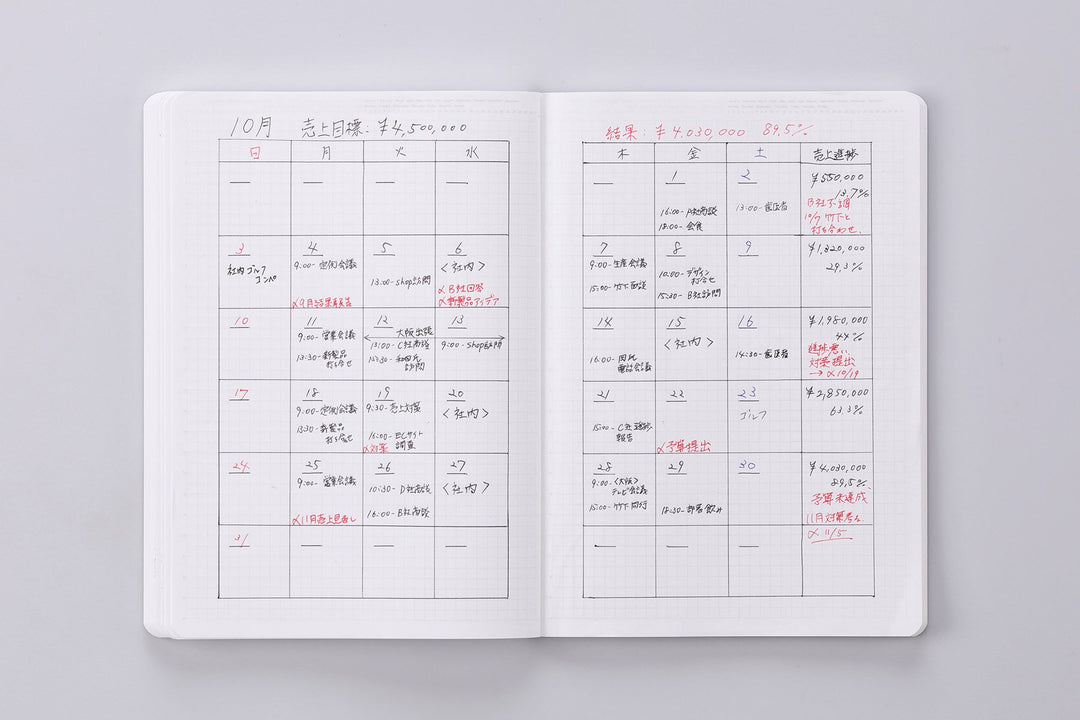 10月 売上目標:¥4,500,000
結果:¥4,030,000 89.5%
日 月 火 水
木 金 土 売上進捗
— — — —
— 1 2
16:00-A社商談
18:00-会食
13:00-歯医者
¥550,000
13.7%
B社不調
10/7 竹下と
打ち合わせ.
3 4 5 6
社内ゴルフ
コンペ
9:00-定例会議
〆9月結果報告
13:00-shop訪問
<社内>
〆B社回答
〆新製品アイデア
7 8 9
9:00-生産会議
15:00-竹下面談
10:00-デザイン
打合せ
15:30-B社訪問
¥1,320,000
29.3%
10 11 12 13
9:00-営業会議
13:30-新製品
打ち合せ
大阪出張
13:00-C社商談
訪問
9:00-shop訪問
14 15 16
16:00-岡氏
電話会議
<社内>
14:30-歯医者
¥1,980,000
44%
進捗悪い.
対策提出
→〆10/19
17 18 19 20
9:00-定例会議
13:30-新製品
打ち合せ
9:30-売上対策
15:00-ECサイト
〆対策 調査
<社内>
21 22 23
15:00-C社進捗
報告
〆予算提出
ゴルフ
¥2,850,000
63.3%
24 25 26 27
9:00-営業会議
〆11月売上見直し
10:30-D社商談
16:00-B社商談
<社内>
28 29 30
9:00-<大阪>
テレビ会議
15:00-竹下同行
18:30-部署飲み
¥4,030,000
89.5%
予算未達成.
11月対策考る.
〆11/5
31 — — —
— — —